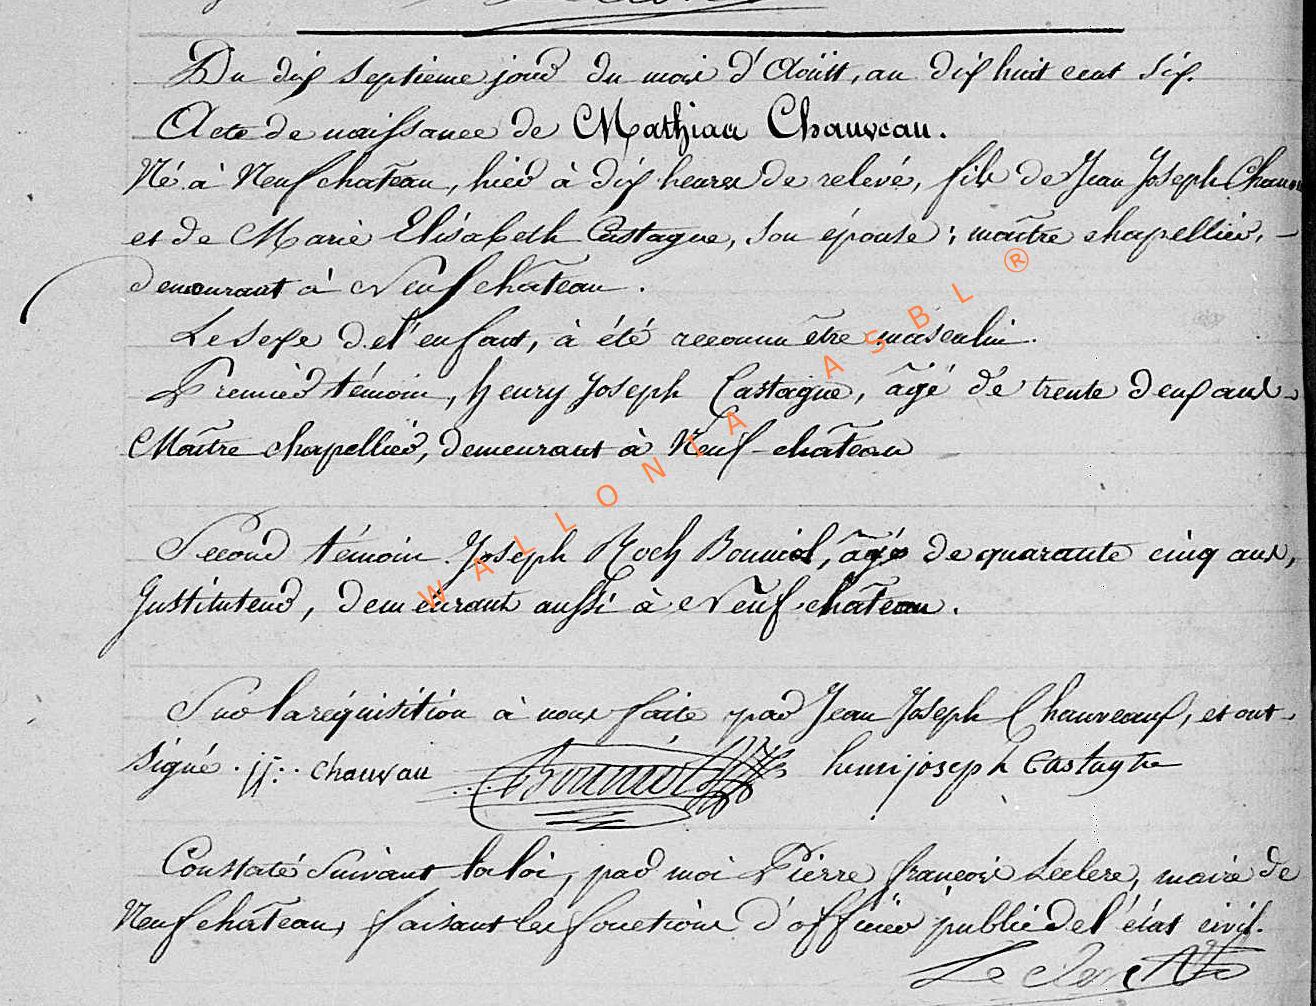 Du dix septieme jour du mois d'Août, an dix huit cent six.
Acte de naissance de Mathiau Chauveau.
Né à Neufchateau, hier à dix heures de relevé, fils de Jean Joseph Chauveau
et de Marie Elisabeth Castagne, son épouse; maître chapellier,
demeurant à Neufchâteau.
Le sexe de l'enfant, à été reconnu être masculin.
Premier témoin, henry Joseph Castagne, âgé de trente deux ans
Maître chapellier, demeurant à Neuf-château
Second témoin Joseph Roch Bouniol, âgé de quarante cinq ans,
Instituteur, demeurant aussi à Neufchâteau.
Sur la réquisition à nous faite par Jean Joseph Chauveaux, et ont
signé. jj: chauvau Bouniol henri joseph Castagne
Constaté Suivant la loi, par moi Pierre françois Leclerc, maire de
Neufchâteau, faisant les fonctions d'officier public de l'état civil.
Le clerc
WALLONIA ASBL ®